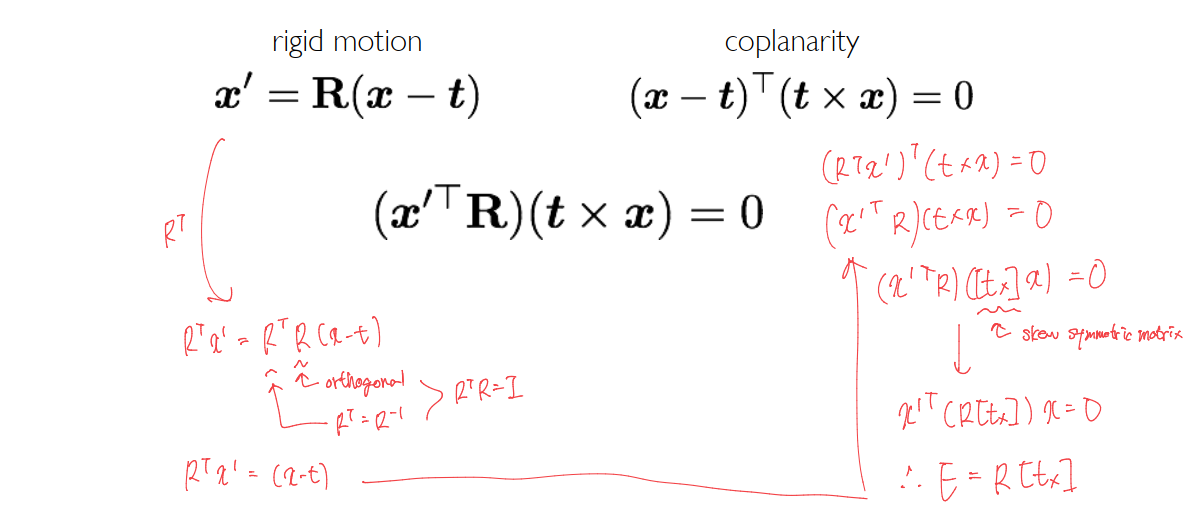 rigid motion
x′ = R(x − t)
coplanarity
(x − t)ᵀ(t × x) = 0
(x′ᵀR)(t × x) = 0
Rᵀ
Rᵀx' = RᵀR(x-t)
orthogonal
Rᵀ = R⁻¹
RᵀR = I
Rᵀx' = (x-t)
(Rᵀx')ᵀ(t×x) = 0
(x'ᵀR)(t×x) = 0
(x'ᵀR)([t×]x) = 0
skew symmetric matrix
x'ᵀ(R[t×])x = 0
∴ E = R[t×]